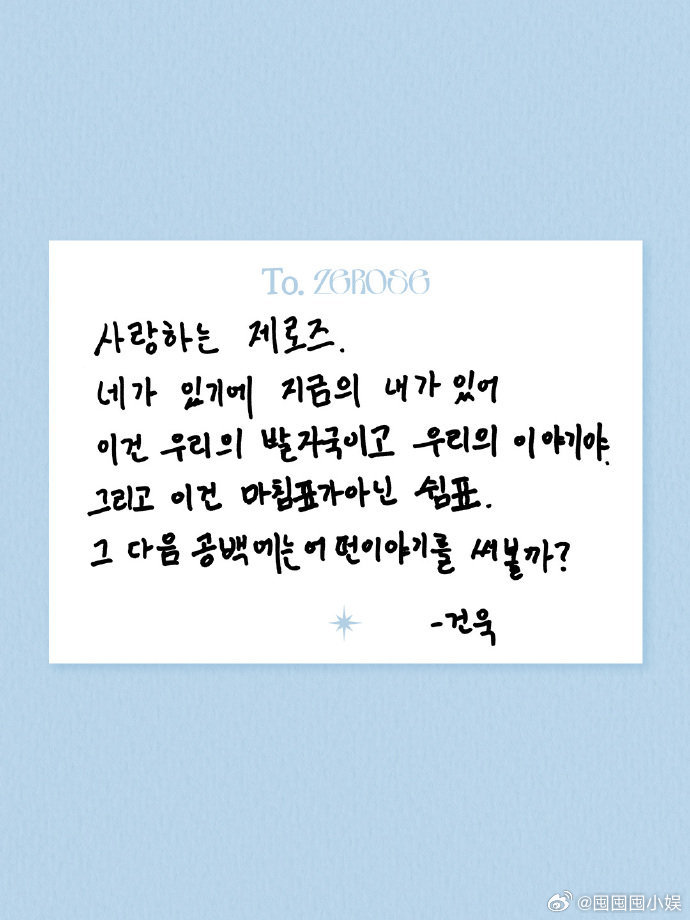 To. ZEROSE
사랑하는 제로즈.
네가 있기에 지금의 내가 있어
이건 우리의 발자국이고 우리의 이야기야.
그리고 이건 마침표가아닌 쉼표.
그 다음 공백에는어떤이야기를 써볼까?
-건욱
@囤囤囤小娱